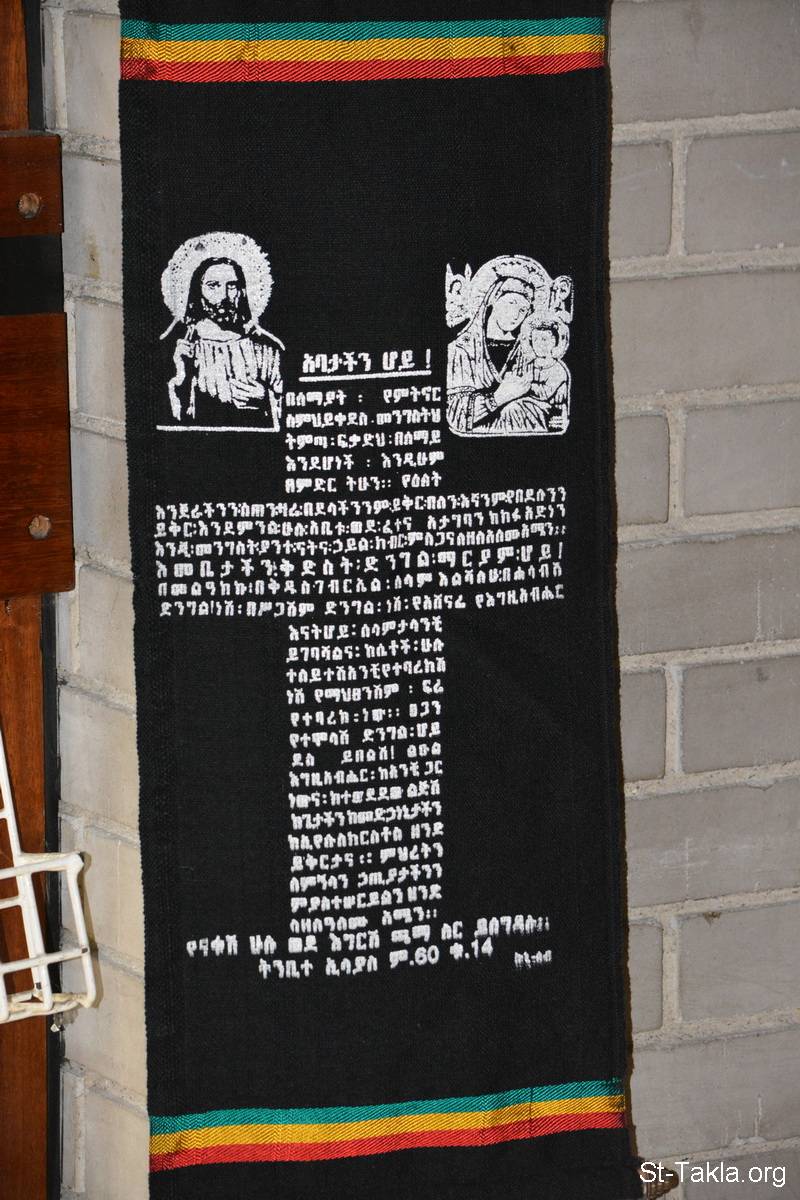 አባታችን ሆይ !
በሰማያት ፡ የምትኖር
ስምህ ይቀደስ መንግስትህ
ትምጣ ፡ ፍቃድህ ፡ በሰማይ
እንደሆነች ፡ እንዲሁም
በምድር ትሁን ። የዕለት
እንጀራችንን ፡ ስጠን ፡ ዛሬ ፡ በደላችንንም ፡ ይቅር ፡ በለን ፡ እኛንም የበደሉንን
ይቅር ፡ እንደምንል ፡ ሁሉ ፡ አቤቱ ፡ ወደ ፡ ፈተና አታግባን ከክፉ አድነን
እንጂ ፡ መንግስት ፡ ያንተ ፡ ናትና ፡ ኃይል ፡ ክብር ፡ ምስጋና ለዘለአለሙ አሜን ።
እመቤታችን ፡ ቅድስት ፡ ድንግል ፡ ማርያም ፡ ሆይ !
በመልዓከኩ ፡ በቅዱስ ገብርኤል ፡ ሰላም እልሻለሁ ፡ በሐሳብሽ
ድንግል ! ነሽ ፡ በሥጋሽም ድንግል ፡ ነሽ ፡ የአሸናፊ የእግዚአብሔር
እናት ሆይ ፡ ሰላምታ ላንቺ
ይገባሻልና ፡ ከሴቶች ፡ ሁሉ
ተለይተሽ አንቺ የተባረክሽ
ነሽ የማህፀንሽም ፡ ፍሬ
የተባረከ ፡ ነው ። ፀጋን
የተሞላሽ ድንግል ፡ ሆይ
ደስ ይበልሽ ! ልዑል
እግዚአብሔር ፡ ከአንቺ ጋር
ነውና ፡ ከተወደደው ልጅሽ
ከጌታችን ከመድኃኒታችን
ከኢየሱስ ክርስቶስ ዘንድ
ይቅርታና ። ምህረትን
ለምኝልን ኃጢያታችንን
ያስተሠርይልን ዘንድ
ለዘለዓለሙ አሜን ።
የናቁሽ ሁሉ ወደ እግርሽ ጫማ ስር ይሰግዳሉ ።
ትንቢተ ኢሳያስ ም.60 ቁ.14
St-Takla.org